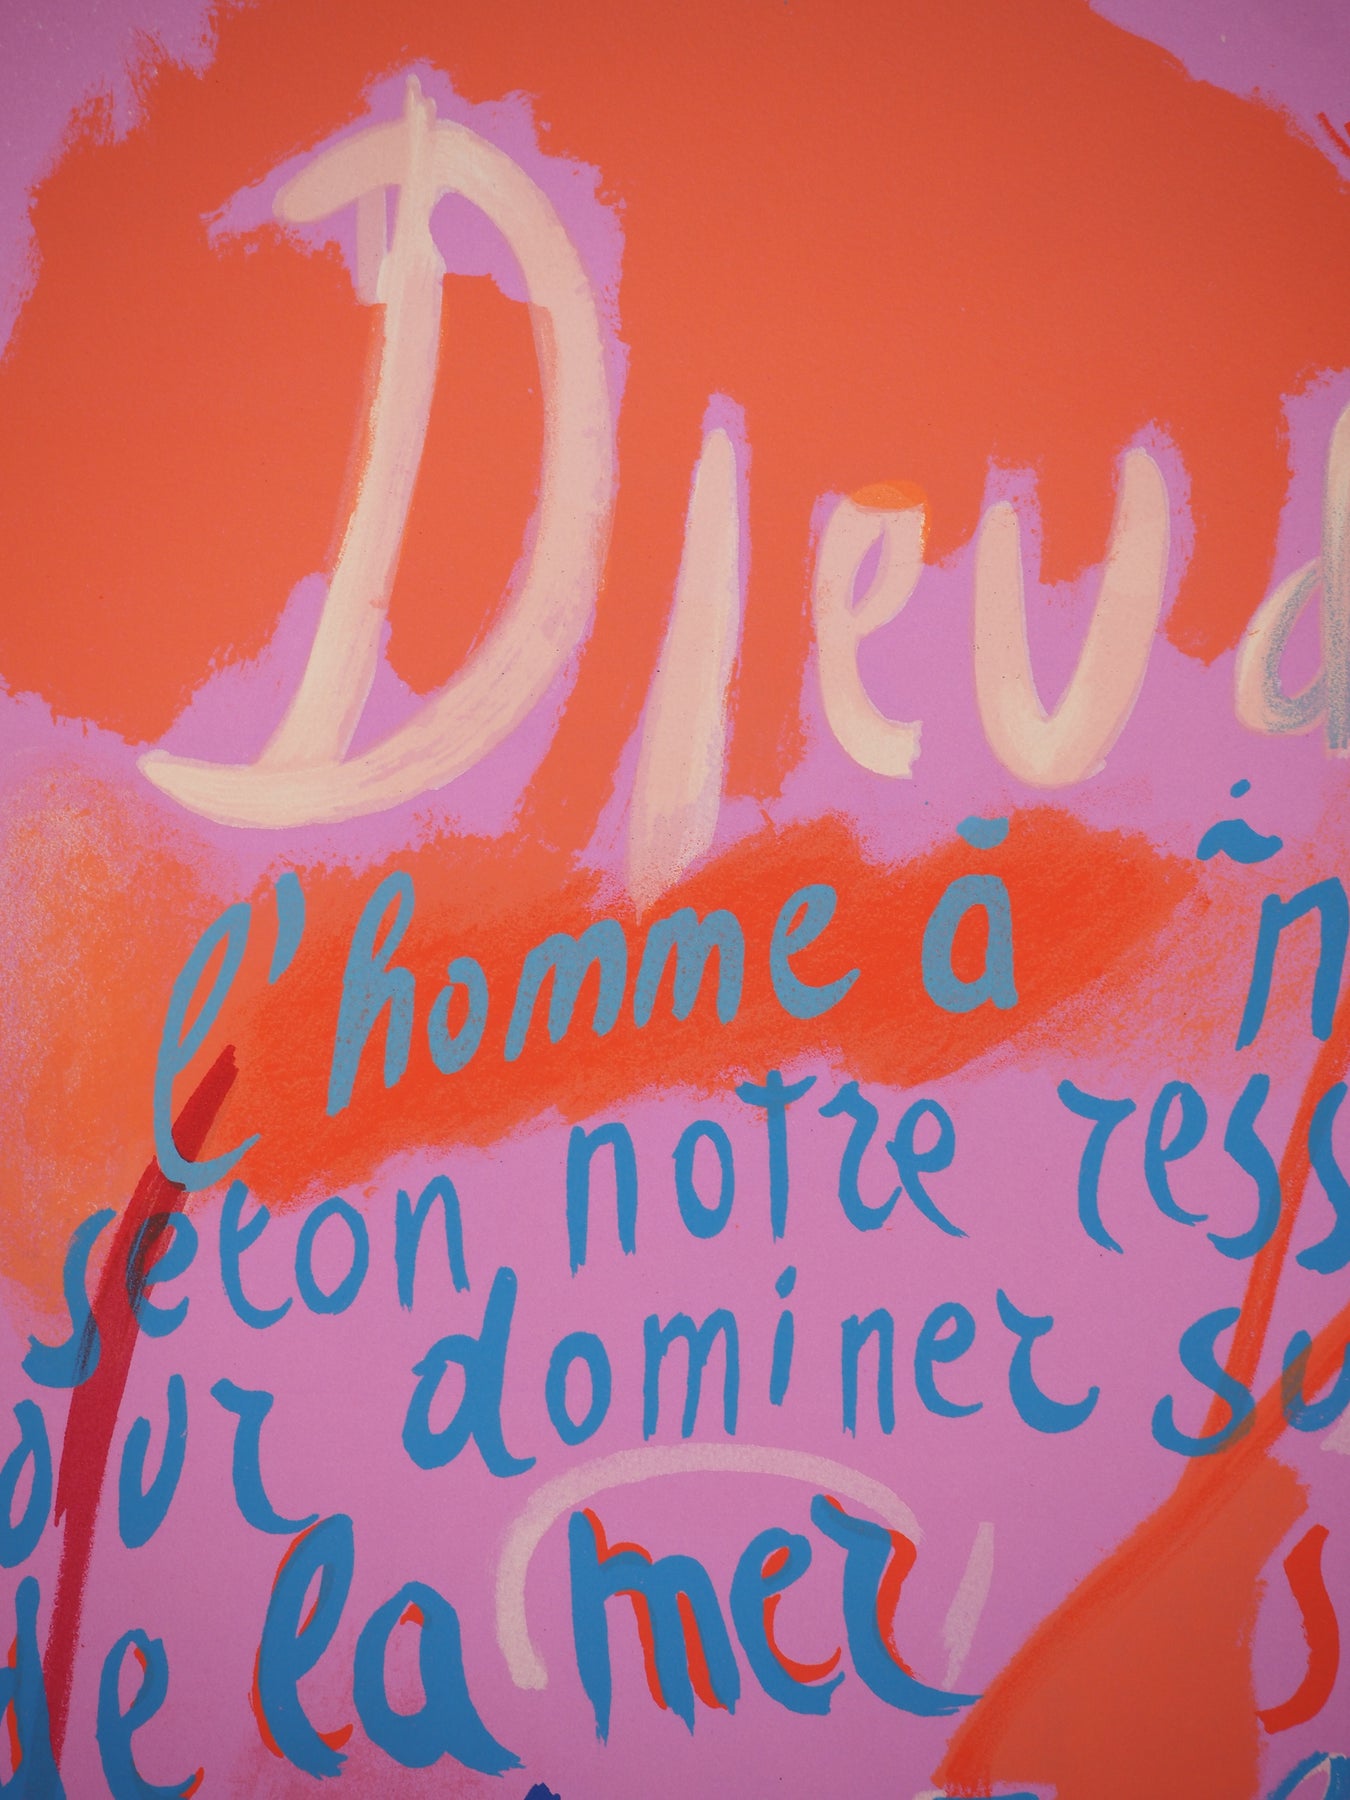 Dieu d
l'homme à n
selon notre ress
our dominer su
de la mer s